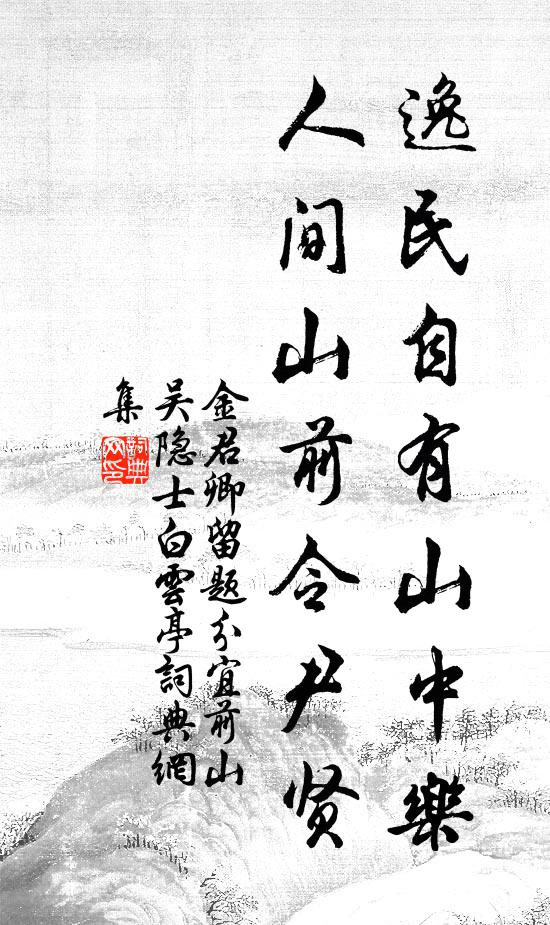 逸民自有山中樂
人间山前令尹贤
金君卿留題分宜前山
吴隐士白雲亭詞典網
集
詞典
网印